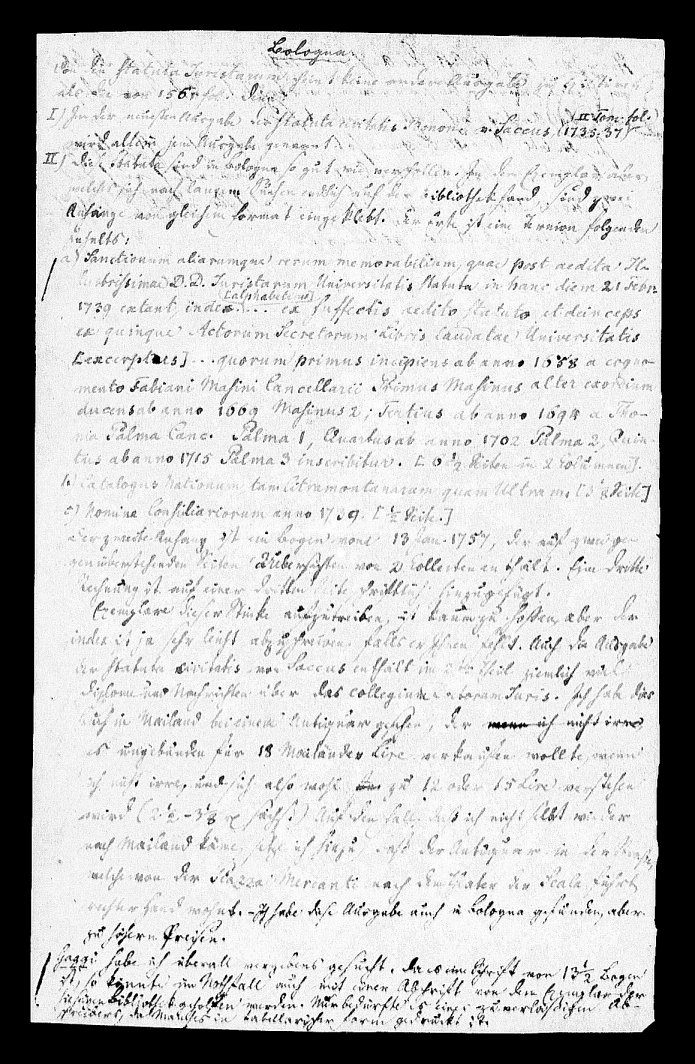 Bologna
Von den Statuta Juristarum scheint keine andere Ausgabe zu existiren
als die von 1561 fol. Denn
I) In der neuesten Ausgabe der Statuta civitatis Bononiae v. Saccus (II Tom. fol. 1735-37)
wird allein jene Ausgabe genannt.
II) Diese Statuta sind in Bologna so gut wie verschollen. In dem Exemplar aber,
welches sich nach langem Suchen endlich auf der Bibliothek fand, sind zwei
Anhänge von gleichem Format eingeklebt. Der erste ist ein Ternion folgenden
Inhalts:
a) Sanctionum aliarumque rerum memorabilium, quae post aedita Il-
lustrissimae D.D. Juristarum Universitatis Statuta in hanc diem 21 Febr.
1739 extant, index [alphabeticus] ... ex suffectis aedito statuto et deinceps
ex quinque Actorum Secretorum Libris laudatae Universitatis
[excerptus] .. quorum primus incipiens ab anno 1658 a cogno-
mento Fabiani Masini Cancellarii Primus Masinus alter exordium
ducens ab anno 1669 Masinus 2; Tertius ab anno 1694 a Tho-
ma Palma Canc. Palma 1, Quartus ab anno 1702 Palma 2, Quin-
tus ab anno 1715 Palma 3 inscribitur. [6 1/2 Seiten in 2 Columnen].
b) Catalogus Nationum tam Citramontanarum quam Ultram. [3 1/2 Seite]
c) Nomina Consiliariorum anno 1739. [1/2 Seite.]
Der zweite Anhang ist ein Bogen vom 13 Jan. 1757, der auf zwei ge-
gen überstehenden Seiten Übersichten von 2 Collecten enthält. Eine dritte
Rechnung ist auf einer dritten Seite hinzugefügt.
Exemplare dieser Stücke aufzutreiben, ist kaum zu hoffen, aber der
index ist ja sehr leicht abzuschreiben, falls er Ihnen fehlt. Auch die Ausgabe
der Statuta civitatis von Saccus enthält im 2ten Theil ziemlich viele
Diplome und Nachrichten über das collegium doctorum Juris. Ich habe das
Buch in Mailand bei einem Antiquar gesehen, der ich nicht irre
es ungebunden für 18 Mailänder Lire verkaufen wollte, wenn
ich nicht irre, und sich also wohl zu 12 oder 15 Lire verstehen
wird (2 1/2 - 3 1/8 sächs.) Auf den Fall, daß ich nicht selbst wieder
nach Mailand käme, setze ich hinzu, daß der Antiquar in der Straße,
welche von der Piazza Mercanti nach dem Theater der Scala führt
rechter Hand wohnt. – Ich habe diese Ausgabe auch in Bologna gefunden, aber
zu höhern Preisen.
Gaggi habe ich überall vergebens gesucht. Da es eine Schrift von 13 1/2 Bogen
ist, so könnte im Nothfall auch mit einer Abschrift von dem Exemplar der
hiesigen Bibliothek geholfen werden. Nur bedürfte es eines zuverlässigen Ab-
schreibers, da Manches in tabellarischer Form gedruckt ist.